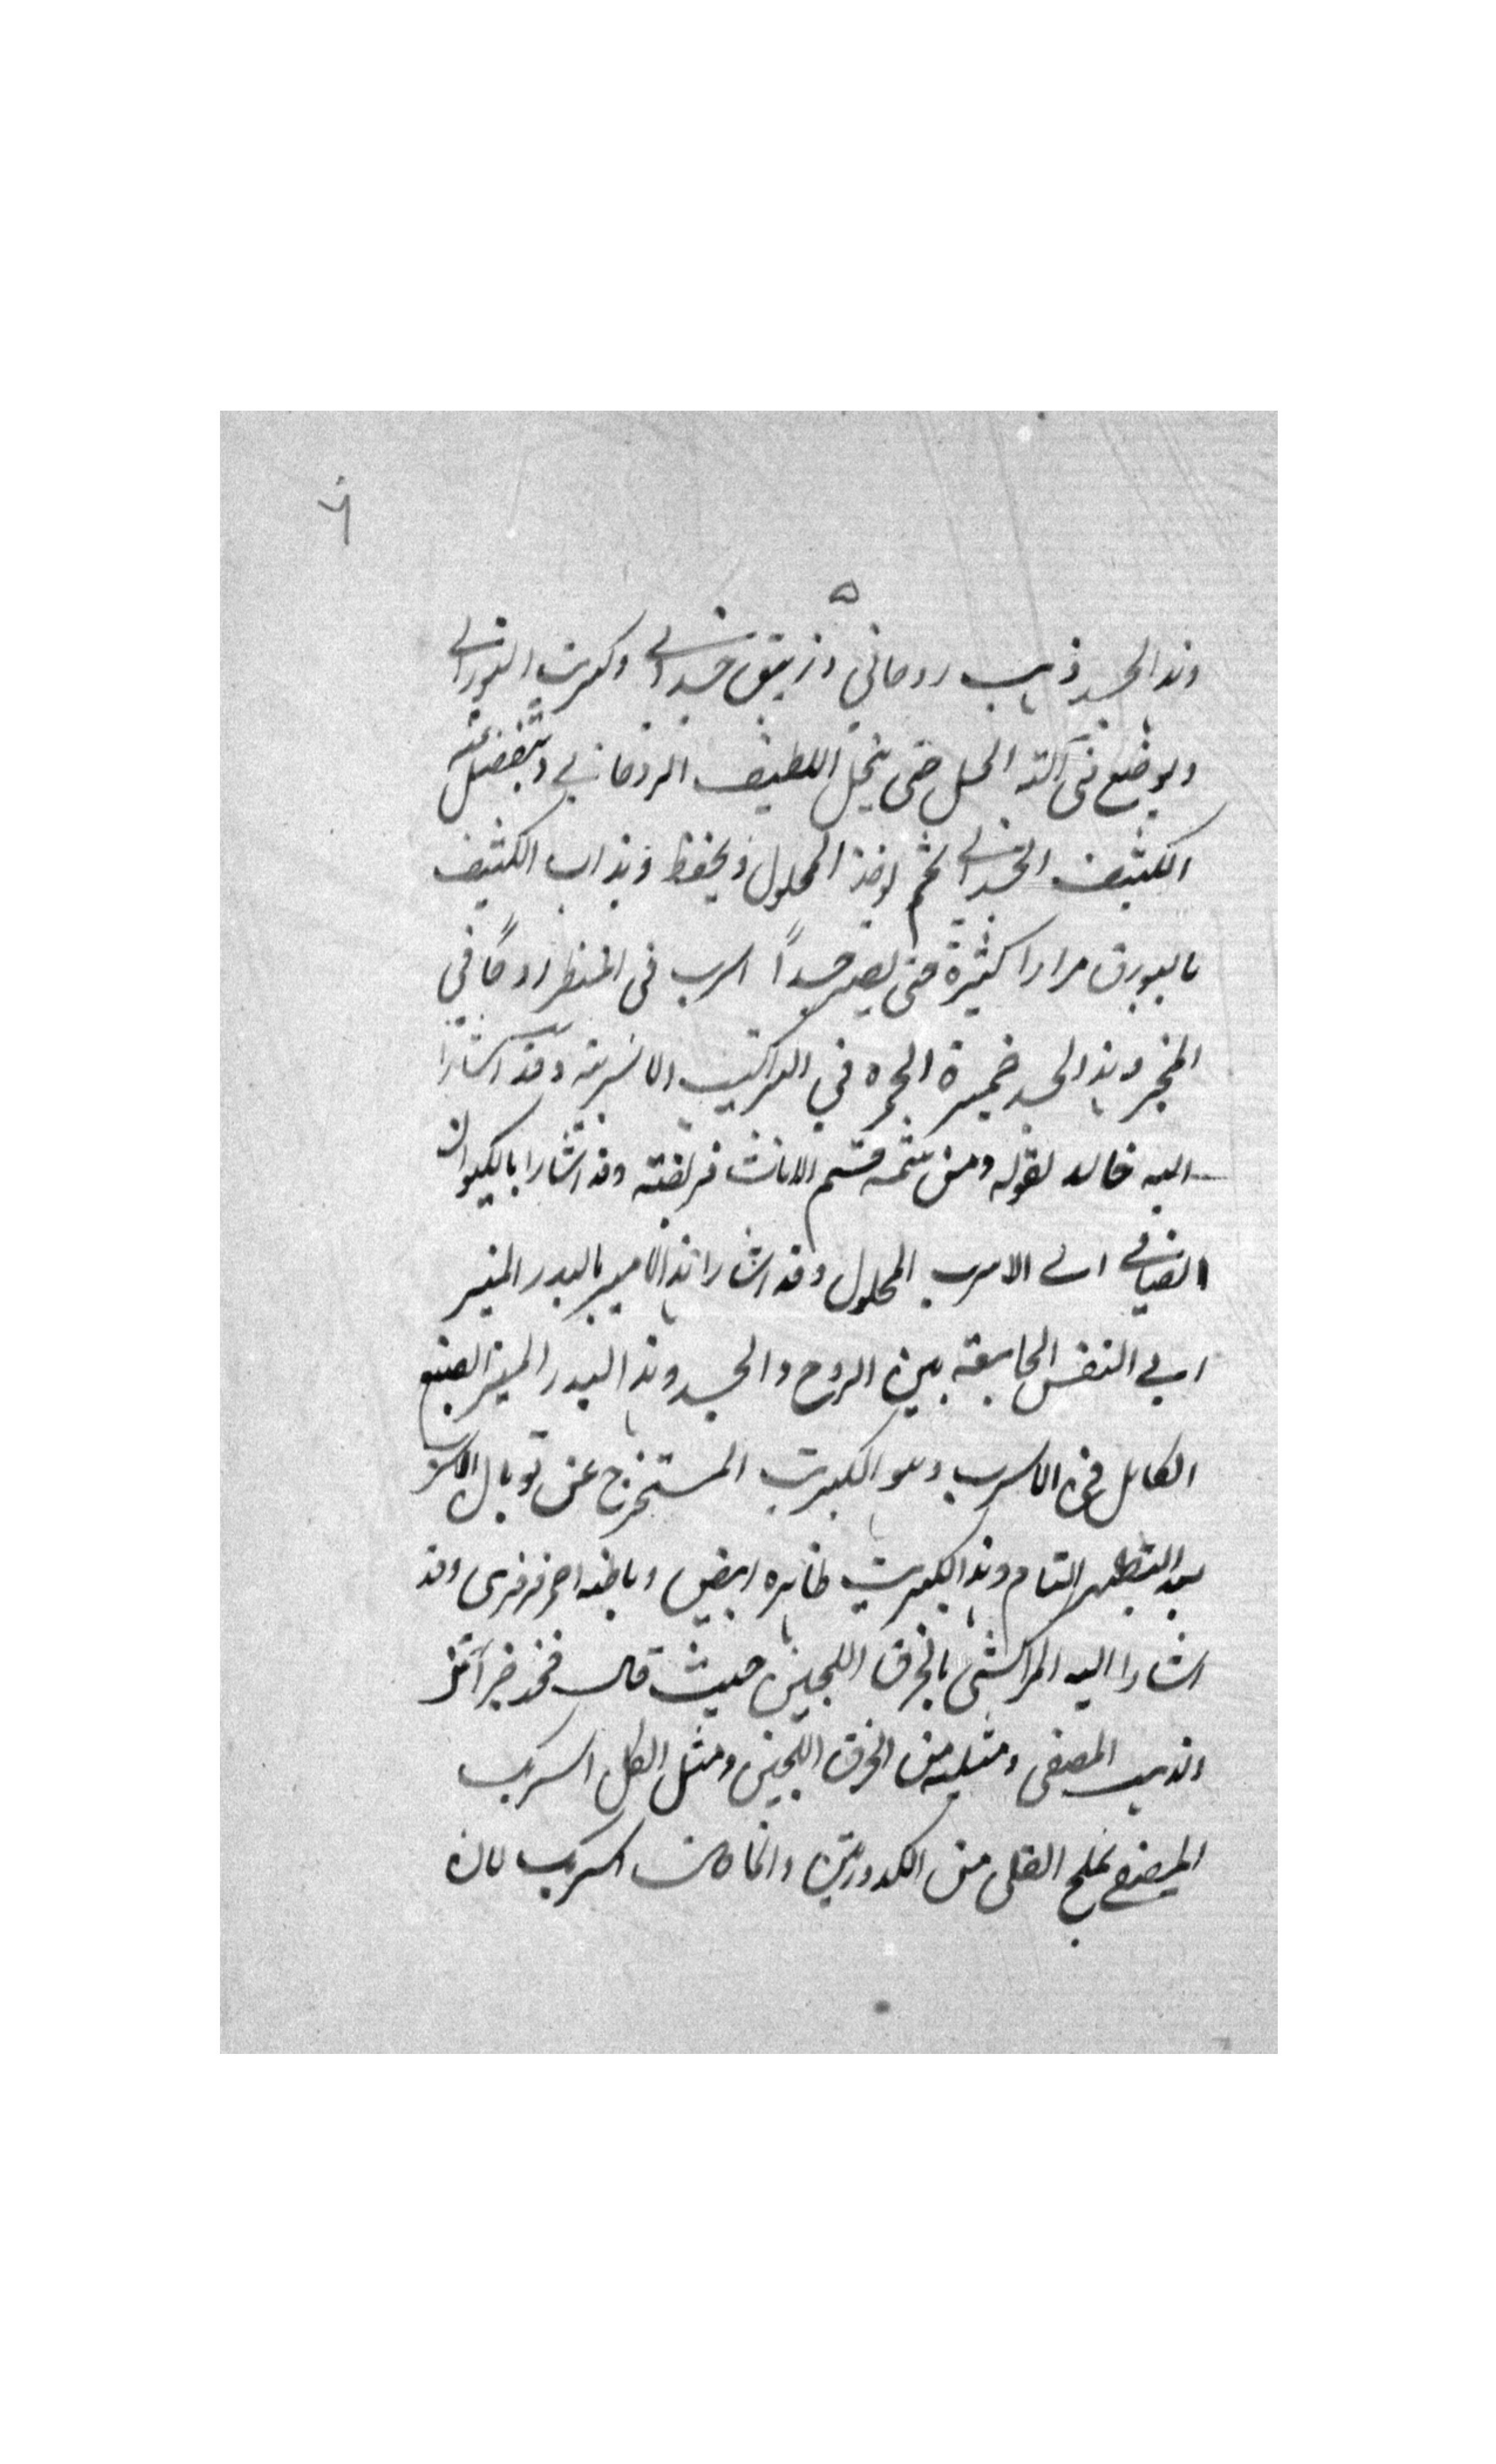 ٦
٥
وهذا الجسد ذهب روحاني وزيبق جسداني وكبريت النوراني
ويوضع في آلة الحل حتى ينحل اللطيف الروحاني وينفصل عنه
الكثيف الجسداني ثم يوخذ المحلول ويحفظ ويذاب الكثيف
بالبورق مرارا كثيرة حتى يصير جسداً اسرب في المنظر اروحاً في
المخبر وهذا الجسد خميرة الحمرة في التراكيب الاسربية وقد اشار
اليه خالد بقوله ومن ثمه قسم الاناث فريضته وقد اشار بالكيوان
الصافي الى الاسرب المحلول وقد اشار هذا الامير بالبدر المنير
الى النفس الجامعة بين الروح والجسد وهذا البدر المنير الصنيع
الكامل في الاسرب وهو الكبريت المستخرج عن توبال الاسرب
بعد التطهير التام وهذا الكبريت ظاهره ابيض وباطنه احمر فرفرى وقد
اشار اليه المراكشي بالخرق اللجين حيث قال فخذ خبر آنز
وذهب المصفى ومثليه من الخرق اللجين ومثل الكل اسرب
المصفى بملح القلى من الكدورتين وانما كانت اسرب لان